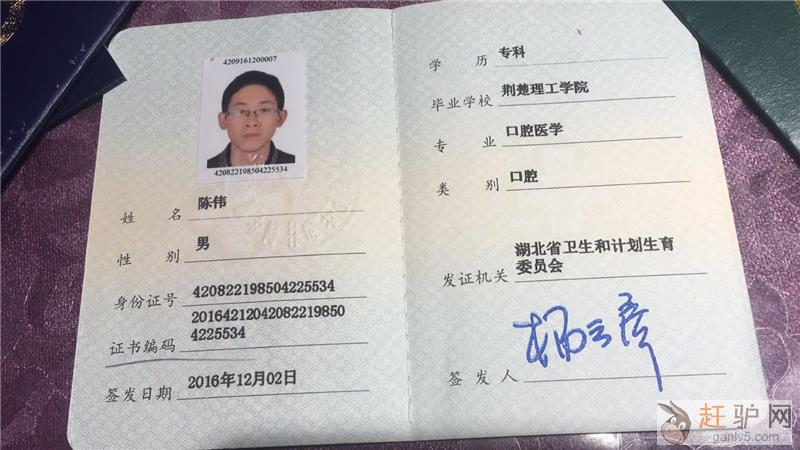 4209161200007
420822198504225534
姓 名 陈伟
性 别 男
身份证号 420822198504225534
20164212042082219850
证书编码 4225534
签发日期 2016年12月02日
学 历 专科
毕业学校 荆楚理工学院
专 业 口腔医学
类 别 口腔
湖北省卫生和计划生育
发证机关 委员会
签 发 人
赶驴网
ganlv5.com